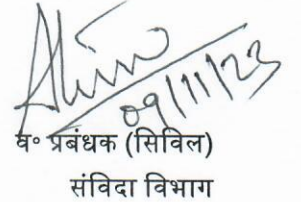 09/11/23
व॰ प्रबंधक (सिविल)
संविदा विभाग